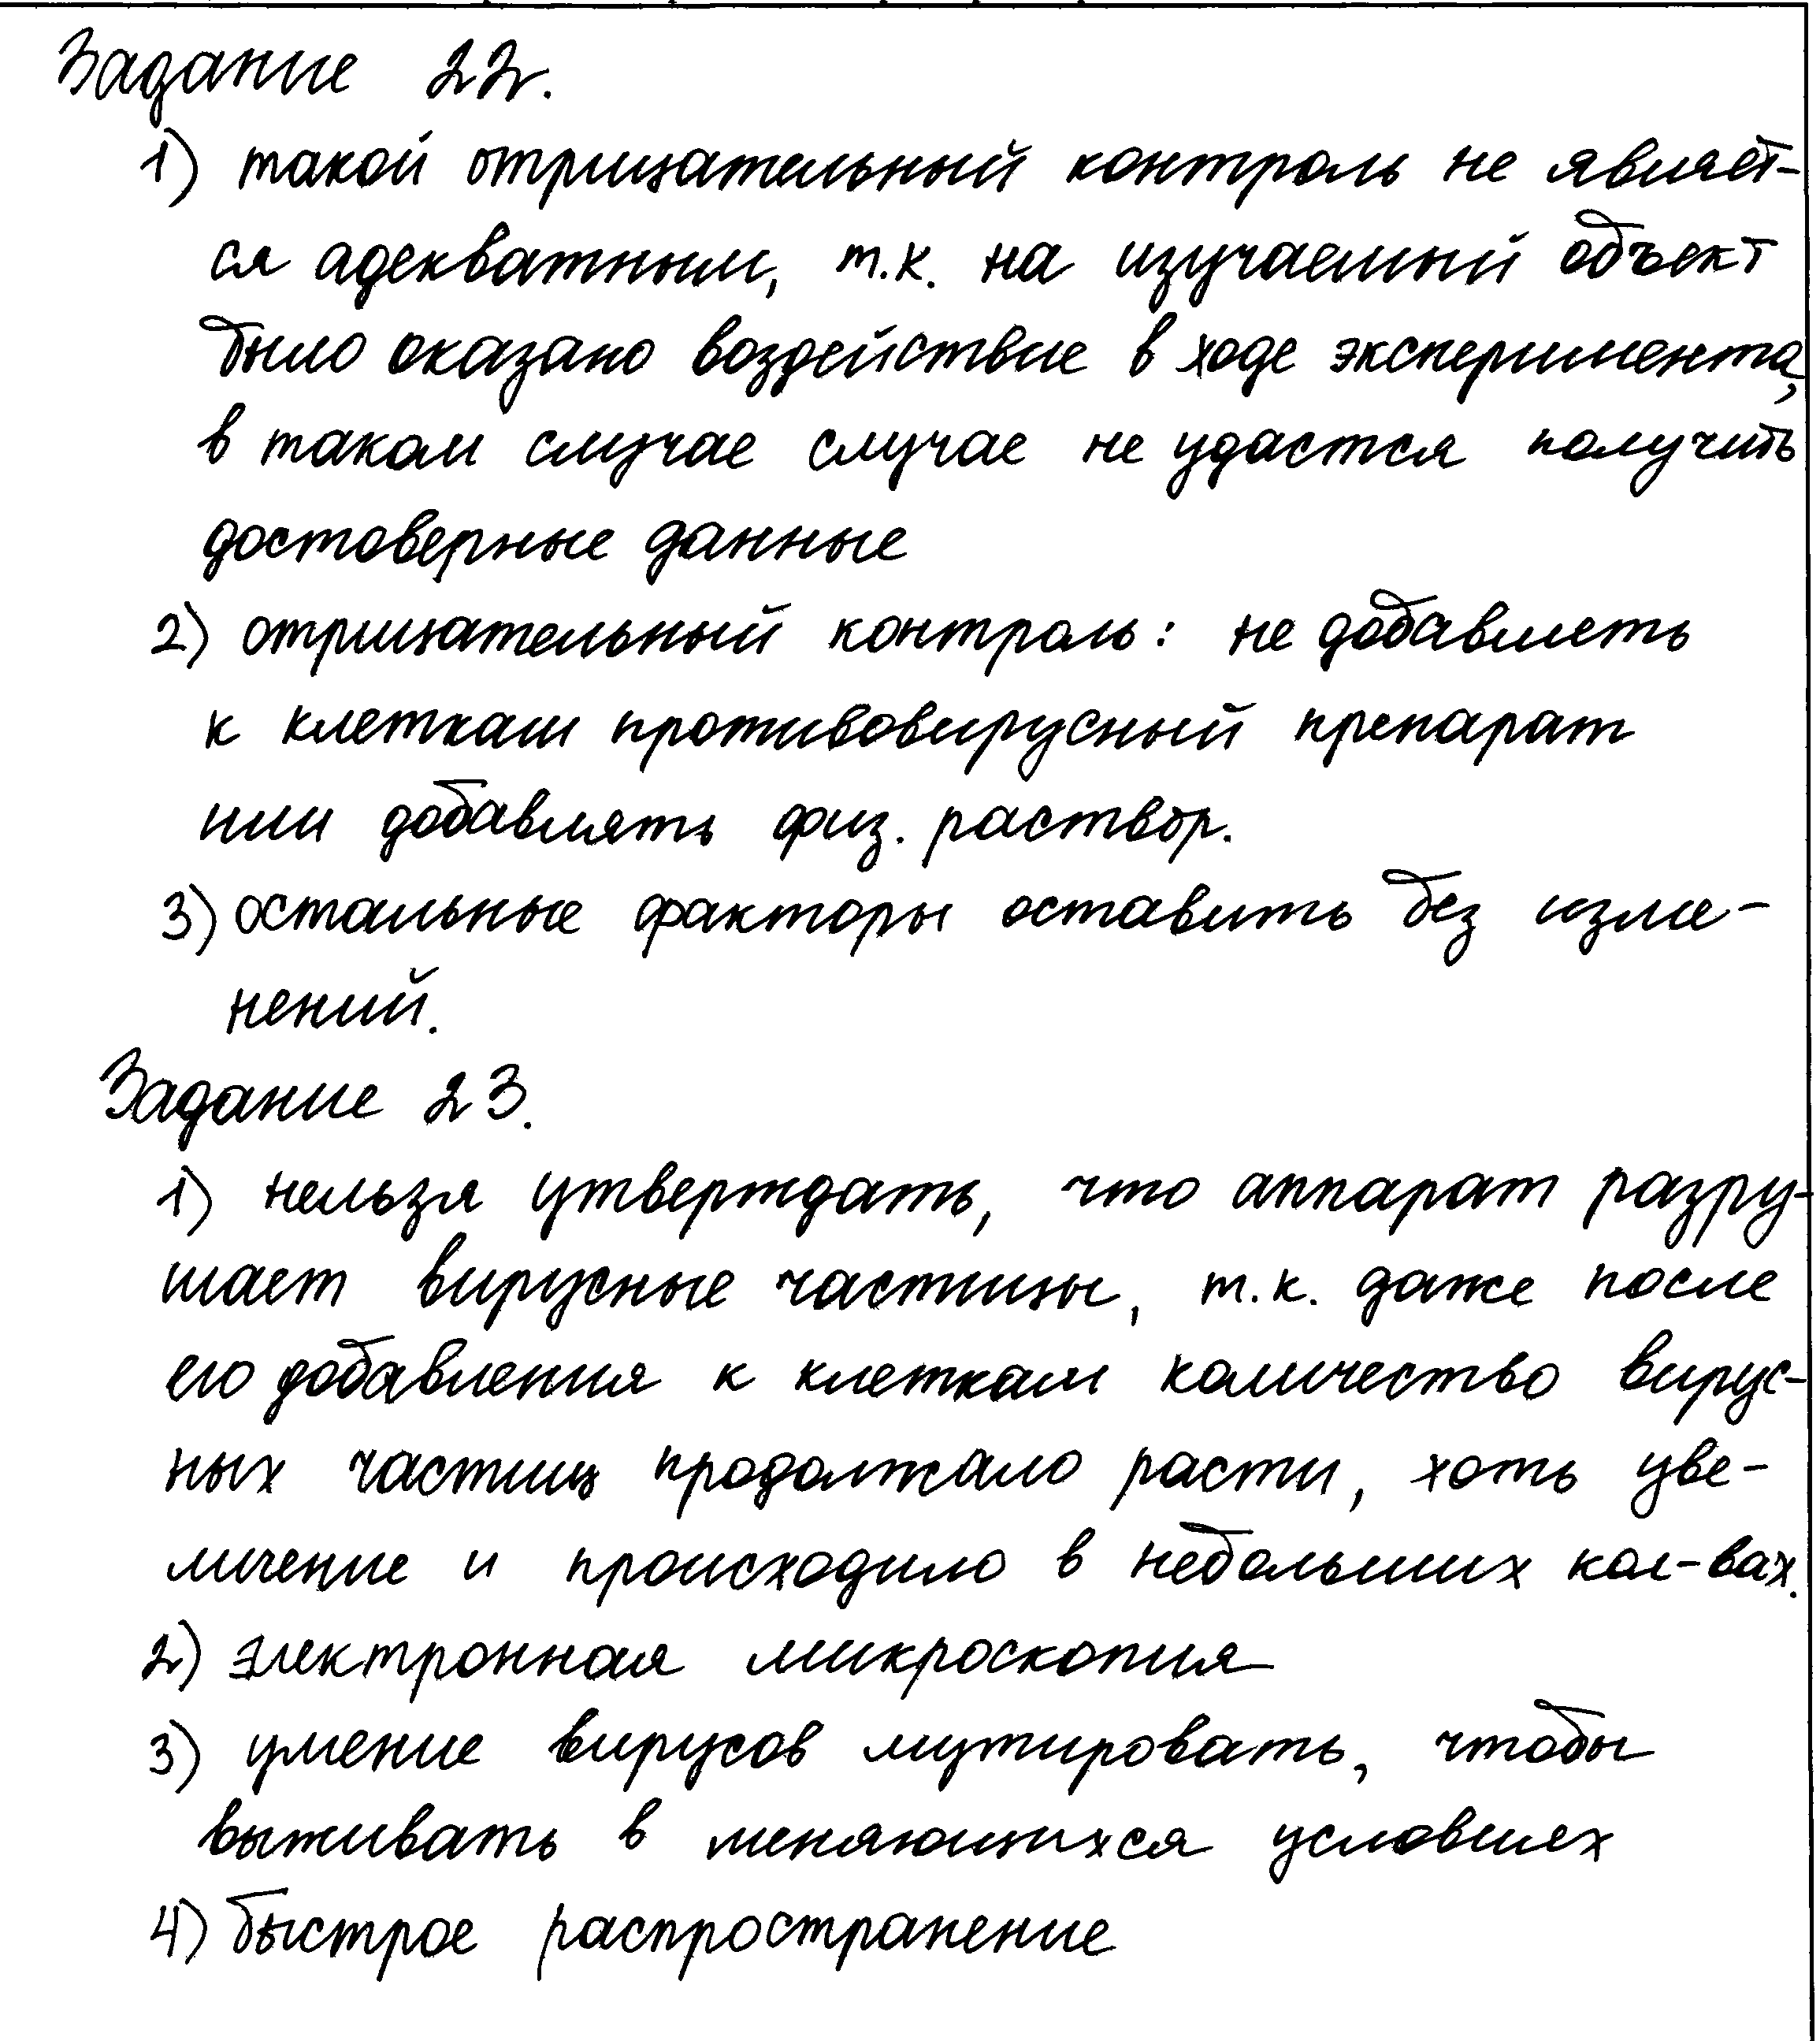 Задание 22.
1) такой отрицательный контроль не являет-
ся адекватным, т.к. на изучаемый объект
было оказано воздействие в ходе эксперимента,
в таком случае случае не удастся получить
достоверные данные
2) отрицательный контроль: не добавлять
к клеткам противовирусный препарат
или добавлять физ. раствор.
3) остальные факторы оставить без изме-
нений.
Задание 23.
1) нельзя утверждать, что аппарат разру-
шает вирусные частицы, т.к. даже после
его добавления к клеткам количество вирус-
ных частиц продолжало расти, хоть уве-
личение и происходило в небольших кол-вах.
2) электронная микроскопия
3) умение вирусов мутировать, чтобы
выживать в меняющихся условиях
4) быстрое распространение